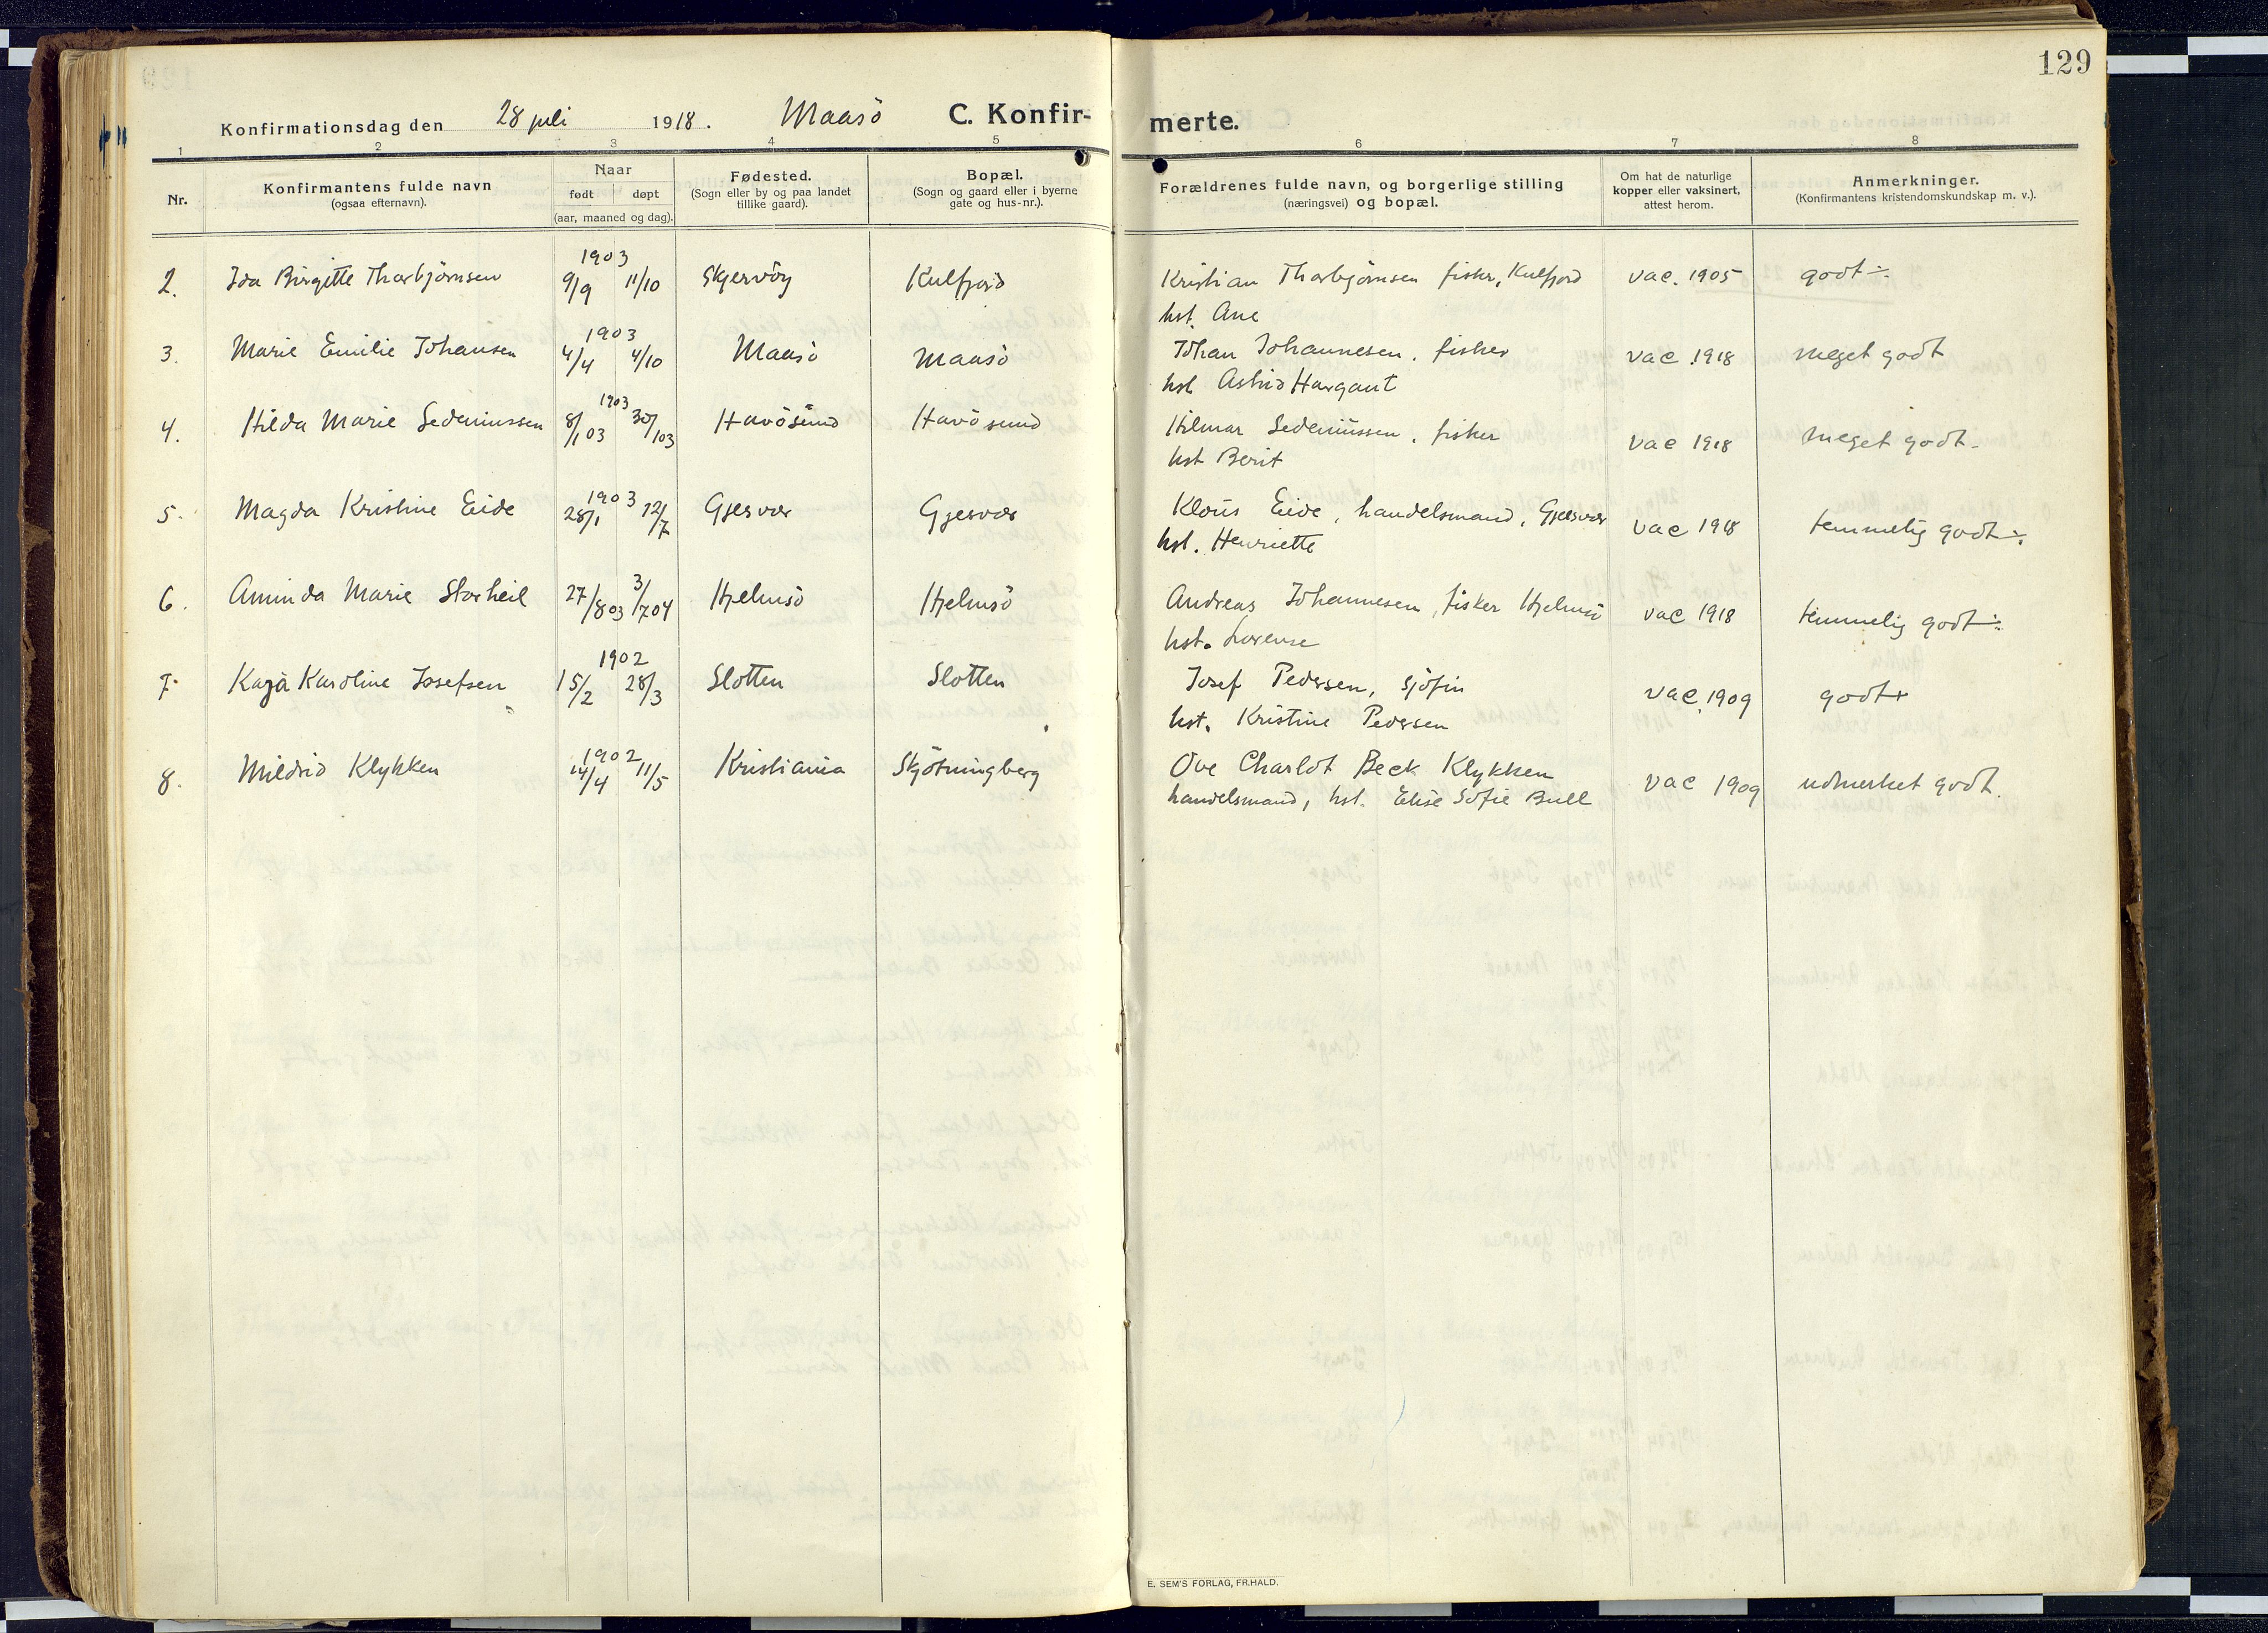 129
Konfirmationsdag den 28 juli 1918. Maasö C. Konfirmerte.
1 2 3 4 5 6 7 8
Nr.
Konfirmantens fulde navn
(ogsaa efternavn).
Naar
født døpt
(aar, maaned og dag).
Fødested.
(Sogn eller by og paa landet
tillike gaard).
Bopæl.
(Sogn og gaard eller i byerne
gate og hus-nr.).
Forældrenes fulde navn, og borgerlige stilling
(næringsvei) og bopæl.
Om hat de naturlige
kopper eller vaksinert,
attest herom.
Anmerkninger.
(Konfirmantens kristendomskundskap m. v.).
1903
2. Ida Birgitte Tharbjörnsen 9/9 11/10 Skjervöy Kulfjord Kristian Tharbjörnsen fisker, Kulfjord vac. 1905 godt ÷
hst. Ane
1903
3. Marie Emilie Johansen 4/4 4/10 Maasö Maasö Johan Johannesen, fisker vac. 1918 meget godt
hst Astrid Hargaut
1903
4. Hilda Marie Sedeniussen 8/1 03 30/1 03 Havösund Havösund Hilmar Sedeniussen, fisker vac 1918 meget godt-
hst Berit
1903
5. Magda Kristine Eide 28/1 12/7 Gjesvær Gjesvær Kloris Eide, handelsmand, Gjesvær vac 1918 temmelig godt ÷
hst. Henriette
6. Aminda Marie Storheil 27/8 03 3/7 04 Hjelmsö Hjelmsö Andreas Johannesen, fisker Hjelmsö vac 1918 temmelig godt ÷
hst. Lorense
1902
7. Kaja Karoline Josefsen 15/2 28/3 Slotten Slotten Josef Pedersen, sjöfin vac. 1909 godt+
hst. Kristine Pedersen
1902
8. Mildrid Klykken 14/4 11/5 Kristiania Skjötningberg Ove Charlot Beck Klykken vac 1909 udmerket godt.
handelsmand, hst. Elise Sofie Bull
E. SEM'S FORLAG, FR.HALD.